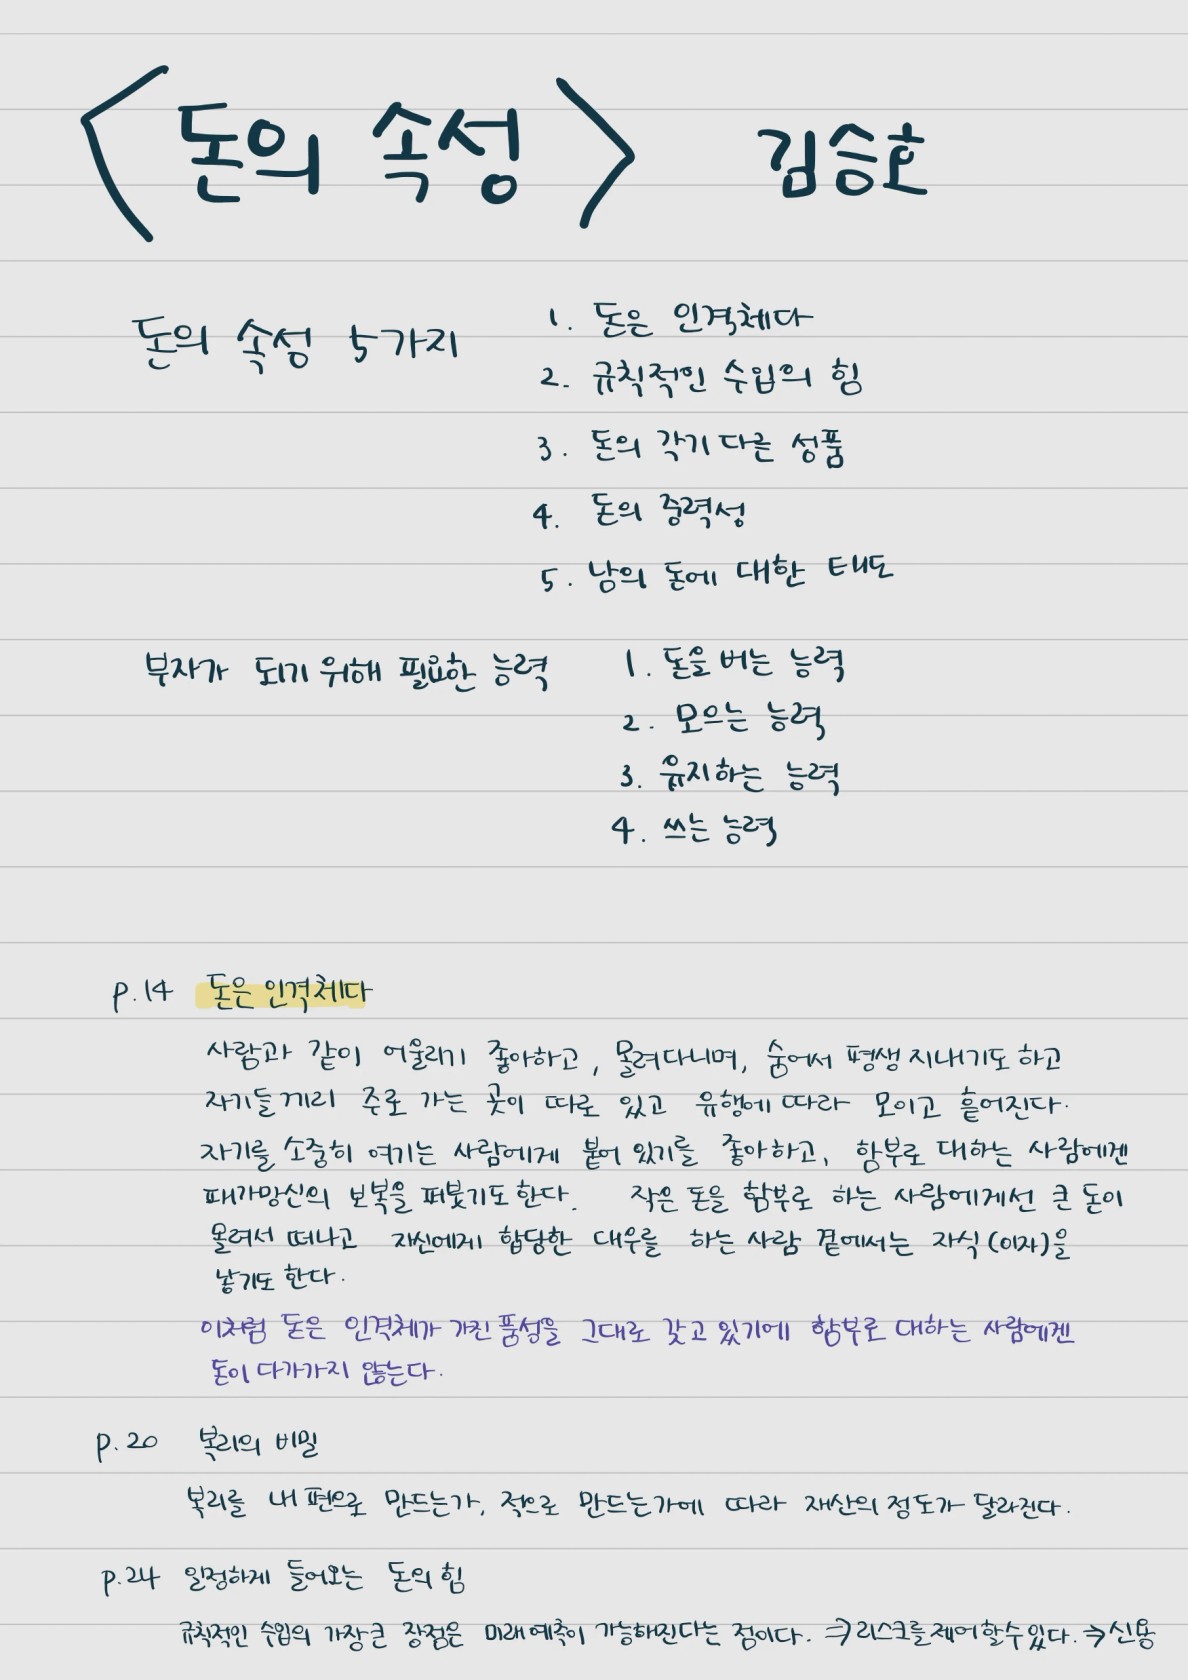 <돈의 속성> 김승호
돈의 속성 5가지
1. 돈은 인격체다
2. 규칙적인 수입의 힘
3. 돈의 각기 다른 성품
4. 돈의 중력성
5. 남의 돈에 대한 태도
부자가 되기 위해 필요한 능력
1. 돈을 버는 능력
2. 모으는 능력
3. 유지하는 능력
4. 쓰는 능력
p.14 돈은 인격체다
사람과 같이 어울리기 좋아하고, 몰려다니며, 숨어서 평생 지내기도 하고
자기들끼리 주로 가는 곳이 따로 있고 유행에 따라 모이고 흩어진다.
자기를 소중히 여기는 사람에게 붙어 있기를 좋아하고, 함부로 대하는 사람에겐
패가망신의 보복을 퍼붓기도 한다. 작은 돈을 함부로 하는 사람에게선 큰 돈이
몰려서 떠나고 자신에게 합당한 대우를 하는 사람 곁에서는 자식(이자)을
낳기도 한다.
이처럼 돈은 인격체가 가진 품성을 그대로 갖고 있기에 함부로 대하는 사람에겐
돈이 다가가지 않는다.
p.20 복리의 비밀
복리를 내 편으로 만드는가, 적으로 만드는가에 따라 재산의 정도가 달라진다.
p.24 일정하게 들어오는 돈의 힘
규칙적인 수입의 가장 큰 장점은 미래 예측이 가능해진다는 점이다. ⇒ 리스크를 제어할 수 있다. ⇒ 신용